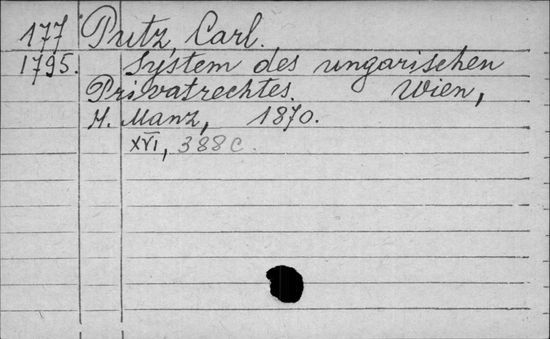 177 Putz, Carl.
1795. System des ungarischen
Privatrechtes. Wien,
H. Manz, 1870.
XVI, 388 c.